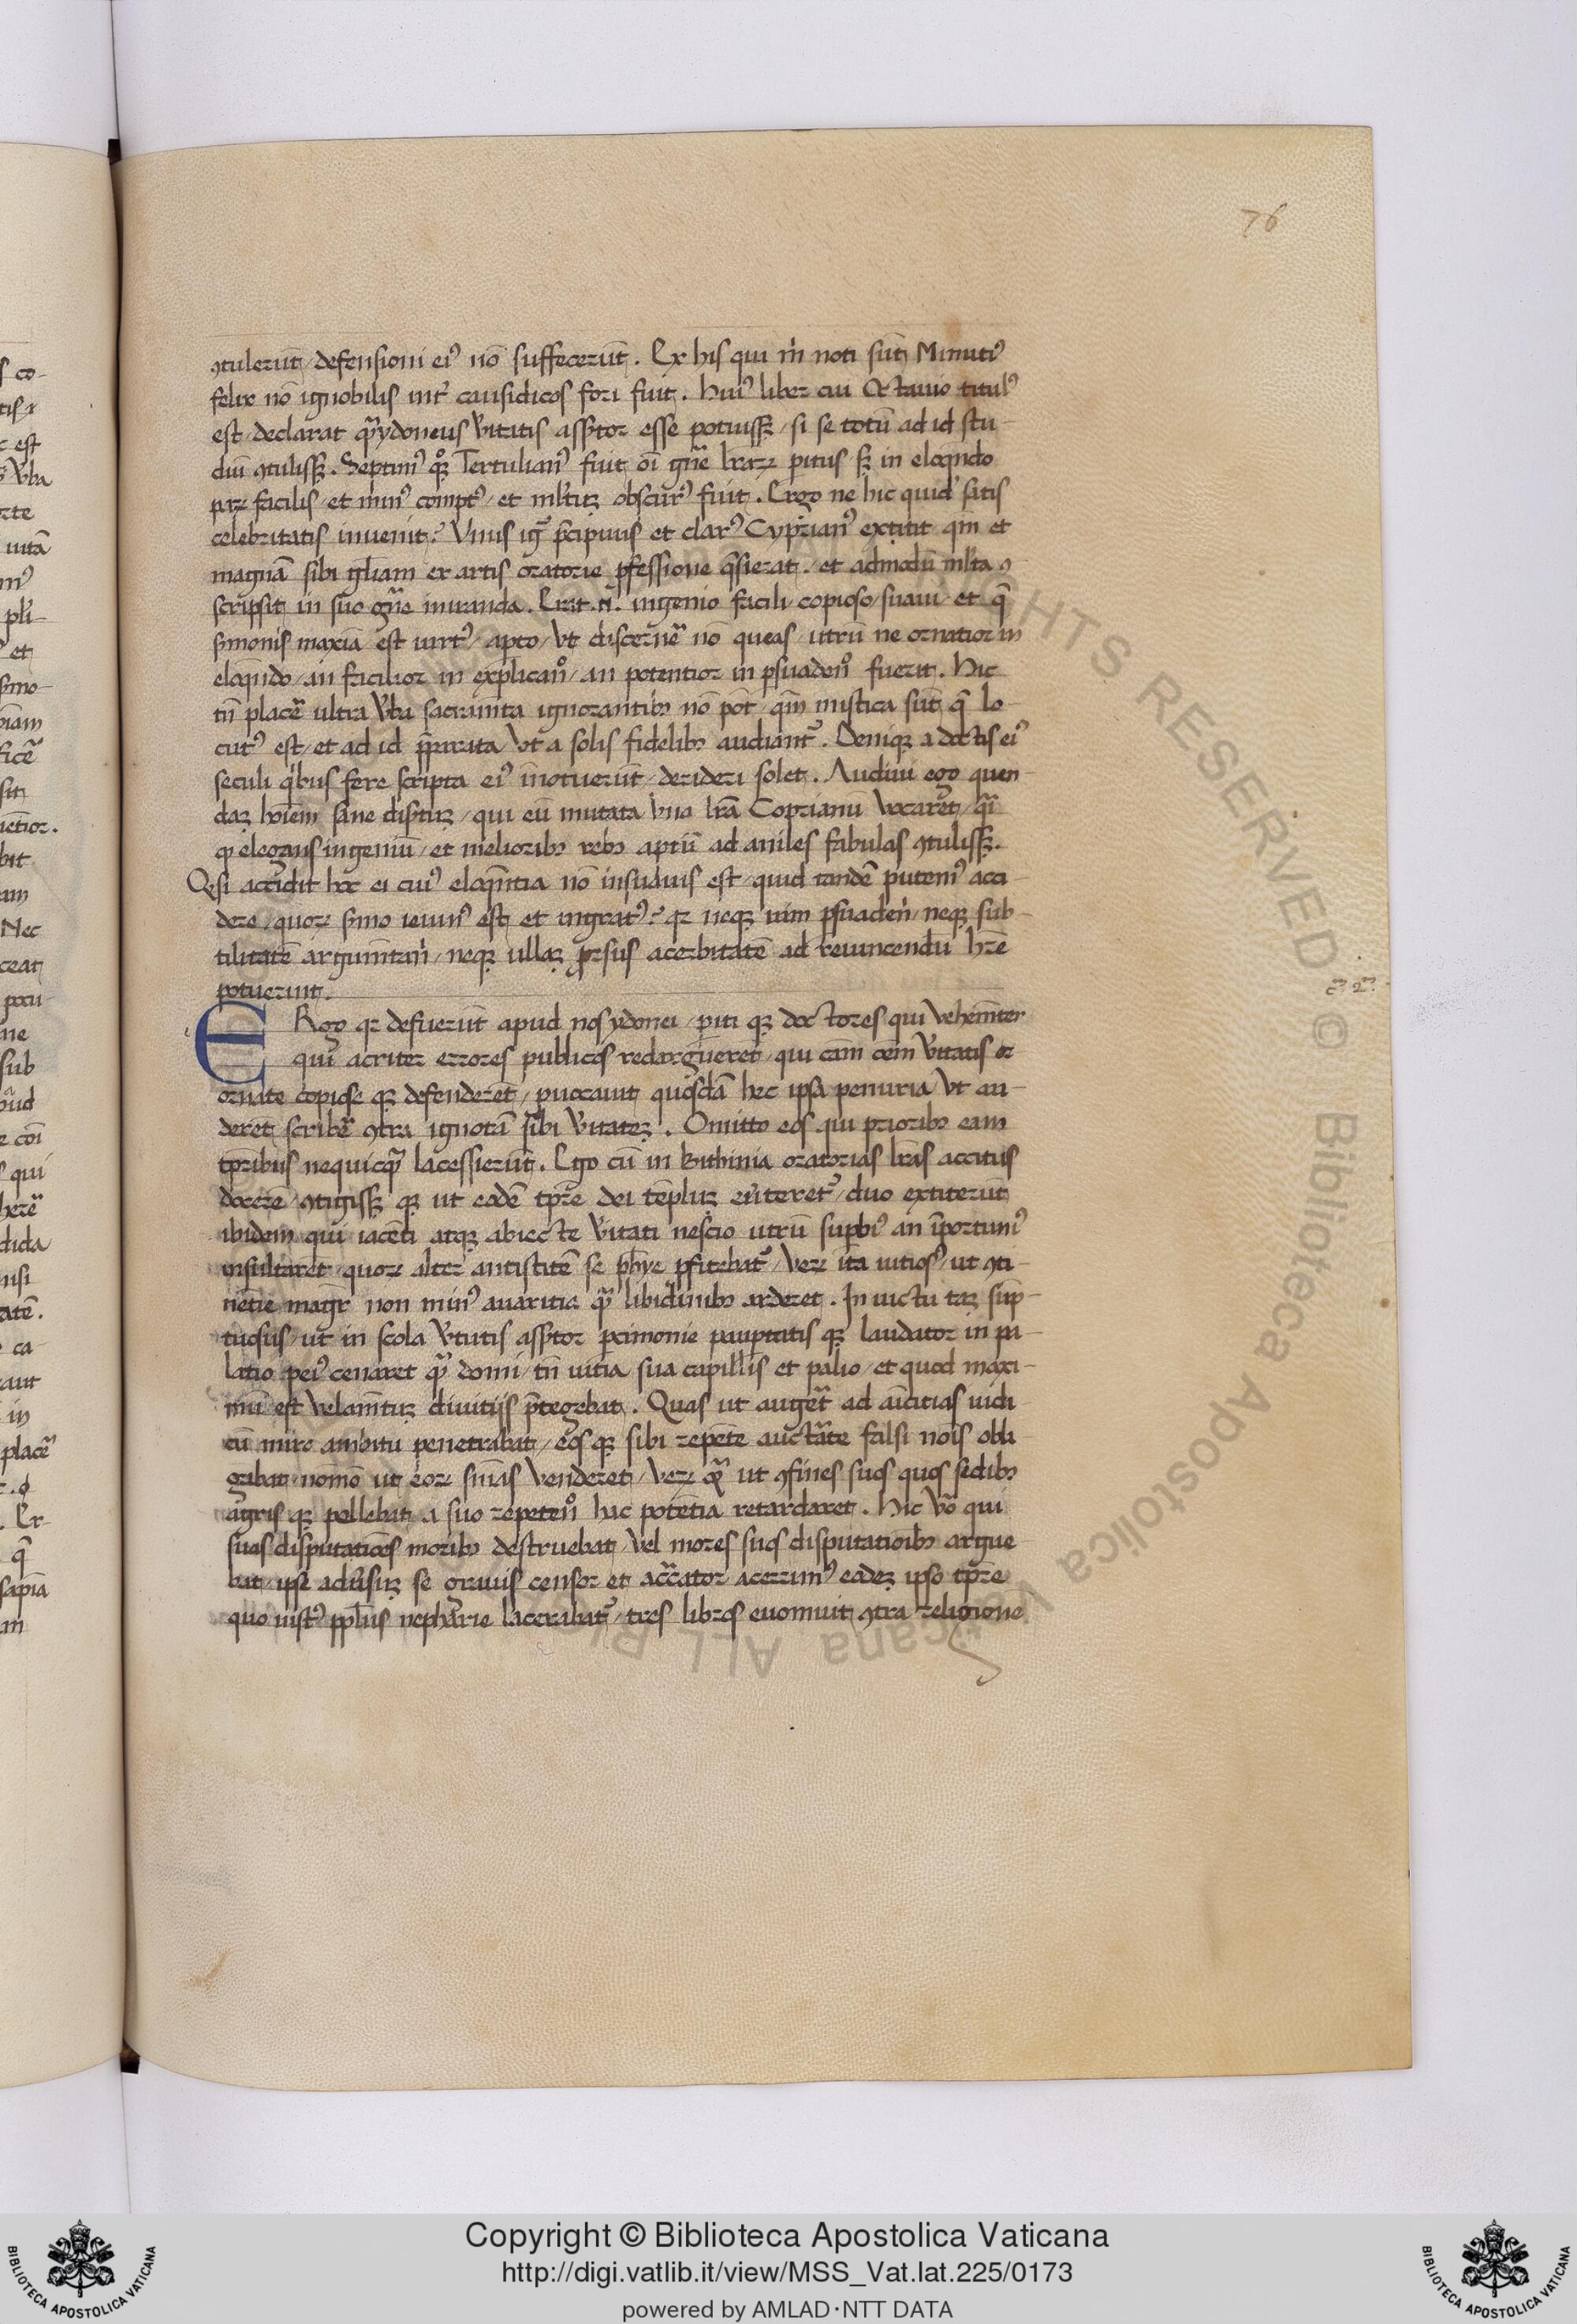 76
ꝯtulerūt / defensioni eiꝰ nō suffecerūt . Ex his qui m̄ noti sūt Minutiꝰ
felix nō ignobilis int̄ causidicos fori fuit . Huiꝰ liber cui Octauio titulꝰ
est / declarat q̄ ydoneus v̄itatis assertor esse potuissꝫ / si se totū ad id stu-
diū ꝯtulissꝫ . Septimꝰ qꝫ Tertulianꝰ fuit oī gn̄e lr̄aꝝ ꝑitus sꝫ in eloq̄ndo
paꝝ facilis / et min̄ꝰ comptꝰ / et ml̄tū obscurꝰ fuit . Ergo ne hic quid̄ satis
celebritatis inuenit . Vnus igr̄ p̄cipuus et clarꝰ Cyprianꝰ extitit qm̄ et
magnā sibi gl̄iam ex artis oratorie ꝓfessione q̄sierat . et admodū ml̄ta ꝯ
scripsit in suo gn̄e miranda . Erat .n̄. ingenio facili / copioso / suaui / et q̄
sermonis maxīa est uirtꝰ / apto / vt discerner̄ nō queas / utrū ne ornatior in
eloq̄ndo / an facilior in explican̄o / an potentior in ꝑsuaden̄o fuerit . Hic
tn̄ placer̄ ultra v̄ba sacram̄ta ignorantibꝰ nō pōt / qm̄ mistica sūt q̄ lo-
cutꝰ est / et ad id p̄parata vt a solis fidelibꝰ audiant̄ . Deniqꝫ a doctis eiꝰ
seculi q̄bus fere scripta eiꝰ īnotuerūt / derideri solet . Audiui ego quen-
daꝫ hoīem sane disertuꝫ / qui eū mutata vna lr̄a Coprianū vocaret / q̄i
ꝙ elegans ingeniū / et melioribꝰ rebꝰ aptū ad aniles fabulas ꝯtulissꝫ .
Qꝫsi accidit hoc ei cuiꝰ eloq̄ntia nō insuauis est / quid tandē putemꝰ acci-
dere / quoꝝ sermo ieiunꝰ est et ingratꝰ . qꝫ neqꝫ uim ꝑsuaden̄ / neqꝫ sub-
tilitatē argum̄tan̄ / neqꝫ ullaꝫ ꝓrsus acerbitatē ad reuincendū hr̄e
potuerunt .
ERgo qꝫ defuerūt apud nos ydonei / ꝑiti qꝫ doctores qui vehem̄ter
qui acriter errores publicos redarguerēt / qui cām oēm v̄itatis
ornate copiose qꝫ defenderēt / puocauit quosdā hec ipsa penuria vt au-
derēt scriber̄ ꝯtra ignotā sibi v̄itateꝫ . Omitto eos qui prioribꝰ eam
tꝑribus nequicq̄ lacessierūt . Ego cū in Bithinia oratorias lr̄as accitus
docere / ꝯtigissꝫ qꝫ ut eodē tꝑre dei tēpluꝫ eu̇teret̄ / duo extiterūt
ibidem qui iacēti atqꝫ abiecte v̄itati nescio utrū suꝑbiꝰ an īportuniꝰ
insultarēt / quoꝝ alter antistitē se ph̄ye ꝓfitebat̄ / veꝝ ita uitiosꝰ / ut ꝯti-
nētie magr̄ non minꝰ auaritia q̄ libidinibꝰ arderet . In uictu taꝫ sūp-
tuosus / ut in scola v̄tutis assertor ꝑcimonie pauꝑtatis qꝫ laudator in pa-
latio peiꝰ cenaret q̄ domi / tn̄ uitia sua capillis et palio / et quod maxi-
mū est velam̄tuꝫ diuitijs p̄tegebat . Quas ut auger̄t ad amīcitias iudi
cū miro ambitu penetrabat / eos qꝫ sibi repēte auctᵃte falsi noīs obli
gabat / nōmō ut eoꝝ sn̄ias venderet / veꝝ q̄ ut ꝯfines suos quos sedibꝰ
agris qꝫ pellebat a suo repeten̄o hac potētia retardaret . Hic v̄o qui
suas disputatiōes moribꝰ destruebat / vel mores suos disputationibꝰ argue
bat / ipse adu̇suꝫ se grauis censor et acc̄ator acerrimꝰ eodeꝫ ipso tꝑre
quo iustꝰ ppl̄us nepharie lacerabat̄ / tres libros euomuit ꝯtra religione
Copyright © Biblioteca Apostolica Vaticana
http://digi.vatlib.it/view/MSS_Vat.lat.225/0173
powered by AMLAD·NTT DATA